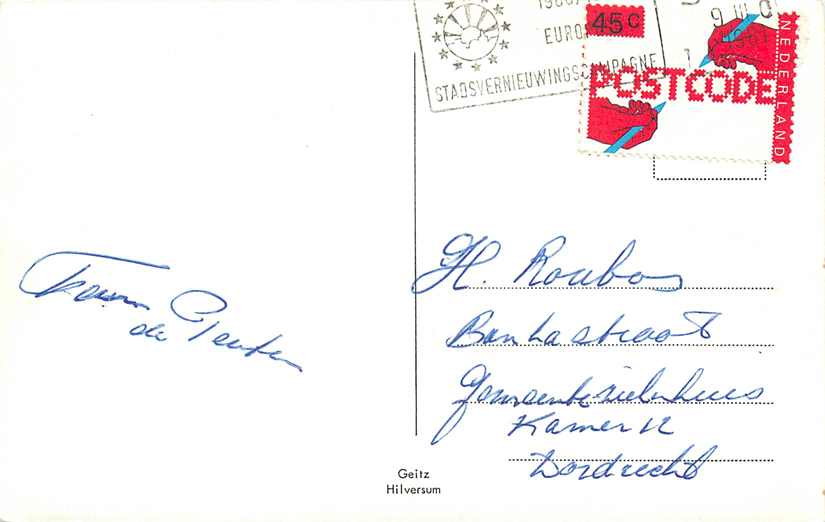 EURO
STADSVERNIEUWINGSCAMPAGNE
45c
POSTCODE
NEDERLAND
H. Roubos
Bankastraat
Gemeenteziekenhuis
Kamer 12
Dordrecht
de
Geitz
Hilversum